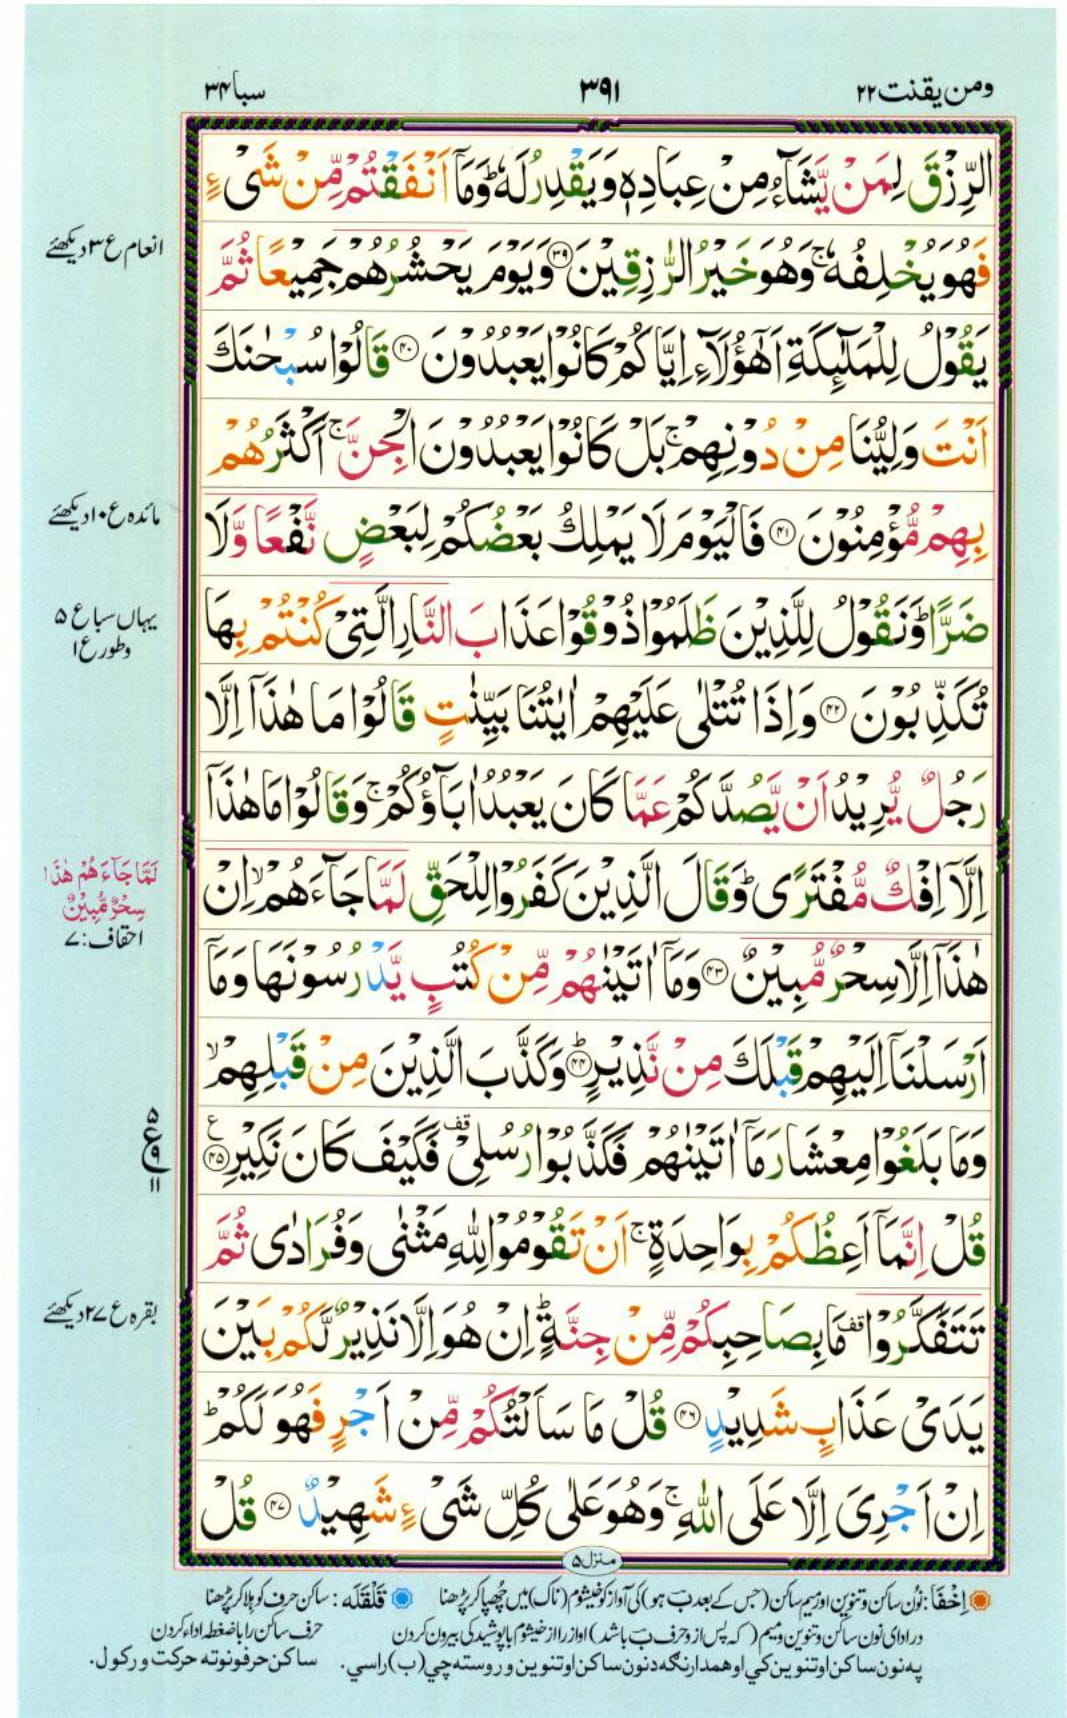 ومن یقنت ۲۲
۳۹۱
سبا ۳۴
الرِّزْقَ لِمَنْ يَّشَآءُ مِنْ عِبَادِهٖ وَيَقْدِرُ لَهٗ ؕ وَمَاۤ اَنْفَقْتُمْ مِّنْ شَیْءٍ
فَهُوَ يُخْلِفُهٗ ۚ وَهُوَ خَيْرُ الرّٰزِقِيْنَ ﴿۳۹﴾ وَيَوْمَ يَحْشُرُهُمْ جَمِيْعًا ثُمَّ
يَقُوْلُ لِلْمَلٰٓئِكَةِ اَهٰٓؤُلَآءِ اِيَّاكُمْ كَانُوْا يَعْبُدُوْنَ ﴿۴۰﴾ قَالُوْا سُبْحٰنَكَ
اَنْتَ وَلِيُّنَا مِنْ دُوْنِهِمْ ۚ بَلْ كَانُوْا يَعْبُدُوْنَ الْجِنَّ ۚ اَكْثَرُهُمْ
بِهِمْ مُّؤْمِنُوْنَ ﴿۴۱﴾ فَالْيَوْمَ لَا يَمْلِكُ بَعْضُكُمْ لِبَعْضٍ نَّفْعًا وَّلَا
ضَرًّا ؕ وَنَقُوْلُ لِلَّذِيْنَ ظَلَمُوْا ذُوْقُوْا عَذَابَ النَّارِ الَّتِیْ كُنْتُمْ بِهَا
تُكَذِّبُوْنَ ﴿۴۲﴾ وَاِذَا تُتْلٰى عَلَيْهِمْ اٰيٰتُنَا بَيِّنٰتٍ قَالُوْا مَا هٰذَاۤ اِلَّا
رَجُلٌ يُّرِيْدُ اَنْ يَّصُدَّكُمْ عَمَّا كَانَ يَعْبُدُ اٰبَآؤُكُمْ ۚ وَقَالُوْا مَا هٰذَاۤ
اِلَّاۤ اِفْكٌ مُّفْتَرًى ؕ وَقَالَ الَّذِيْنَ كَفَرُوْا لِلْحَقِّ لَمَّا جَآءَهُمْ ۙ اِنْ
هٰذَاۤ اِلَّا سِحْرٌ مُّبِيْنٌ ﴿۴۳﴾ وَمَاۤ اٰتَيْنٰهُمْ مِّنْ كُتُبٍ يَّدْرُسُوْنَهَا وَمَاۤ
اَرْسَلْنَاۤ اِلَيْهِمْ قَبْلَكَ مِنْ نَّذِيْرٍ ﴿۴۴﴾ؕ وَكَذَّبَ الَّذِيْنَ مِنْ قَبْلِهِمْ ۙ
وَمَا بَلَغُوْا مِعْشَارَ مَاۤ اٰتَيْنٰهُمْ فَكَذَّبُوْا رُسُلِیْ قف فَكَيْفَ كَانَ نَكِيْرِ ﴿۴۵﴾ ع
قُلْ اِنَّمَاۤ اَعِظُكُمْ بِوَاحِدَةٍ ۚ اَنْ تَقُوْمُوْا لِلّٰهِ مَثْنٰى وَفُرَادٰى ثُمَّ
تَتَفَكَّرُوْا قف مَا بِصَاحِبِكُمْ مِّنْ جِنَّةٍ ؕ اِنْ هُوَ اِلَّا نَذِيْرٌ لَّكُمْ بَيْنَ
يَدَیْ عَذَابٍ شَدِيْدٍ ﴿۴۶﴾ قُلْ مَا سَاَلْتُكُمْ مِّنْ اَجْرٍ فَهُوَ لَكُمْ ؕ
اِنْ اَجْرِیَ اِلَّا عَلَى اللّٰهِ ۚ وَهُوَ عَلٰى كُلِّ شَیْءٍ شَهِيْدٌ ﴿۴۷﴾ قُلْ
انعام ع ۳ دیکھئے
مائدہ ع ۱۰ دیکھئے
یہاں سبا ع ۵
و طور ع ۱
لَمَّا جَآءَهُمْ هٰذَا
سِحْرٌ مُّبِيْنٌ
احقاف: ۷
۵
ع ۹
۱۱
بقرہ ع ۲۷ دیکھئے
منزل ۵
اِخْفَا: نون ساکن و تنوین اور میم ساکن (جس کے بعد ب ہو) کی آواز کو خیشوم (ناک) میں چُھپا کر پڑھنا
قَلْقَلَہ: ساکن حرف کو ہلا کر پڑھنا
در ادای نون ساکن و تنوین و میم (که پس از و حرف ب باشد) آواز را از خیشوم با پوشیدگی بیرون کردن
حرف ساکن را با ضغطہ اداء کردن
په نون ساکن او تنوین کي او همدارنګه د نون ساکن او تنوین وروسته چي (ب) راسي.
ساکن حرفونو ته حرکت ورکول.